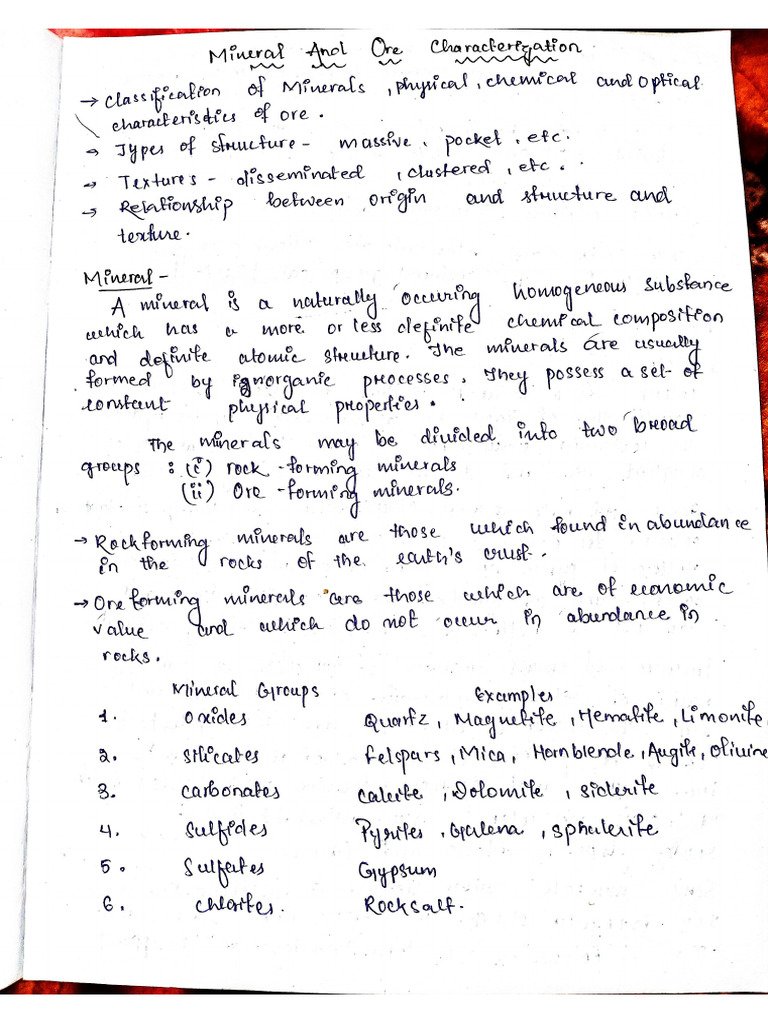 Mineral And Ore Characterization
→ Classification of Minerals, physical, chemical and optical
characteristics of ore.
→ Types of structure - massive, pocket, etc.
→ Textures - disseminated, clustered, etc.
→ Relationship between origin and structure and
texture.
Mineral -
A mineral is a naturally occuring homogeneous substance
which has a more or less definite chemical composition
and definite atomic structure. The minerals are usually
formed by ignorganic processes. They possess a set of
constant physical properties.
The minerals may be divided into two broad
groups : (i) rock-forming minerals
(ii) Ore-forming minerals.
→ Rockforming minerals are those which found in abundance
in the rocks of the earth's crust.
→ Ore forming minerals are those which are of economic
value and which do not occur in abundance in
rocks.
Mineral Groups Examples
1. Oxides Quartz, Magnetite, Hematite, Limonite
2. Silicates Felspars, Mica, Hornblende, Augite, Olivine
3. Carbonates Calcite, Dolomite, Siderite
4. Sulfides Pyrites, Galena, Sphalerite
5. Sulfates Gypsum
6. Chlorites. Rocksalt.